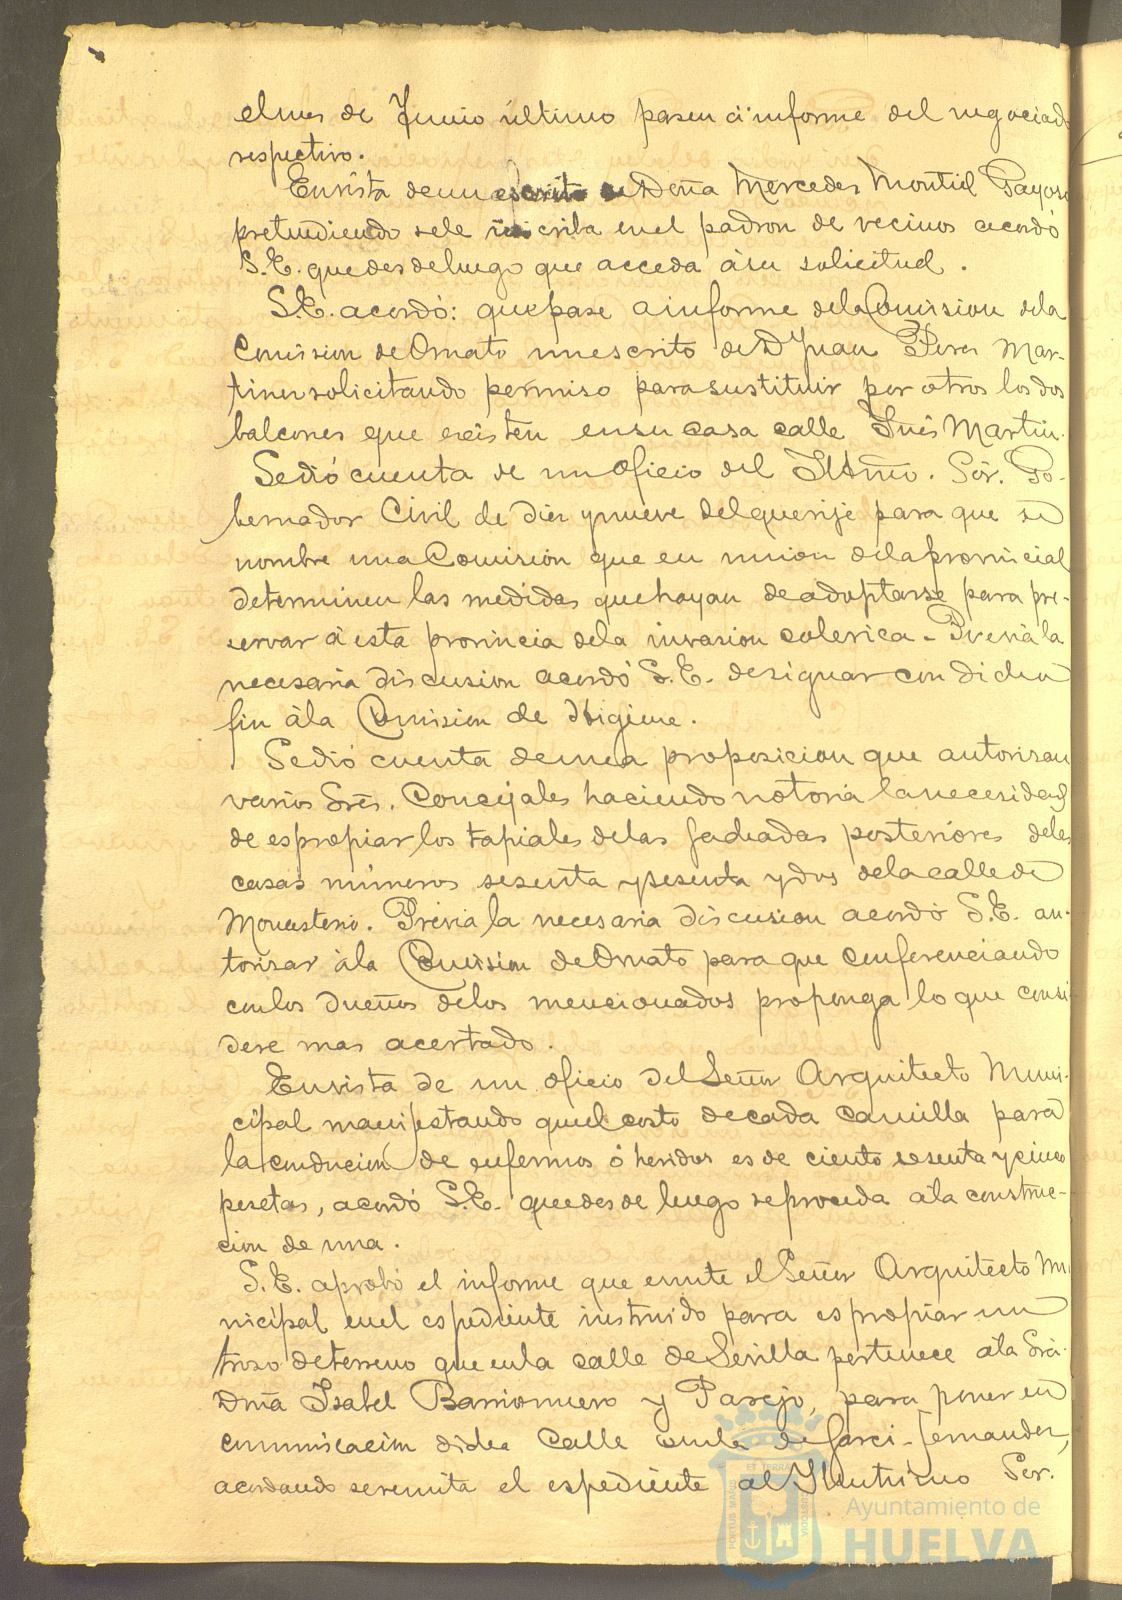 el mes de Junio último pasen á informe del negociado
respectivo.
En vista de un escrito de Doña Mercedes Montiel Payos
pretendiendo se le inscriba en el padron de vecinos acordó
S.E. que desde luego que acceda á su solicitud.
S.E. acordó: que pase a informe de la Comision de la
Comision de Ornato un escrito de D Juan Perez Mar-
tinez solicitando permiso para sustituir por otros los dos
balcones que existen en su casa calle Inés Martin.
Se dió cuenta de un oficio del Iltmo. Sór. Go-
bernador Civil de diez y nueve del que rije para que se
nombre una Comisión que en union de la provincial
determinen las medidas que hayan de adoptarse para pre-
servar á esta provincia de la invasion colerica - Previa la
necesaria discusion acordó S.E. designar con dicho
fin á la Comision de Higiene.
Se dió cuenta de una proposicion que autorizan
varios Sres. Concejales haciendo notoria la necesidad
de espropiar los tapiales de las fachadas posteriores de las
casas números sesenta y sesenta y dos de la calle de
Monasterio. Prévia la necesaria discusion acordó S.E. au-
torizar á la Comision de Ornato para que conferenciando
con los dueños de los mencionados proponga lo que consi
dere mas acertado.
En vista de un oficio del Señor Arquitecto Muni-
cipal manifestando que el costo de cada camilla para
la conducion de enfermos ó heridos es de ciento sesenta y cinco
pesetas, acordó S.E. que desde luego se proceda á la construc-
cion de una.
S.E. aprobó el informe que emite el Señor Arquitecto Mu
nicipal en el espediente instruido para espropiar un
trozo de terreno que en la calle de Sevilla pertenece á la Sra.
Dña Isabel Barrionuevo y Parejo, para poner en
comunicacion dicha Calle con la de Garci-Fernandez,
acordando se remita el espediente al Ilustrisimo Sor.
PORTUS MARIS ET TERRAE CUSTODIA
Ayuntamiento de
HUELVA